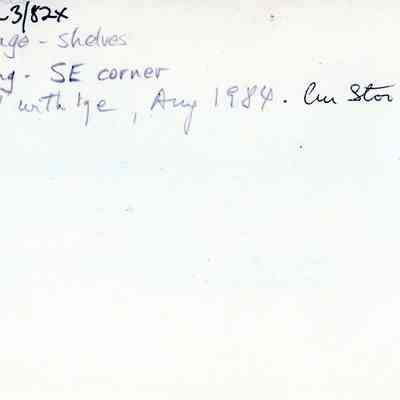 -3/82x
age - shelves
g - SE corner
with 'ge, Aug 1984. Cm Stor